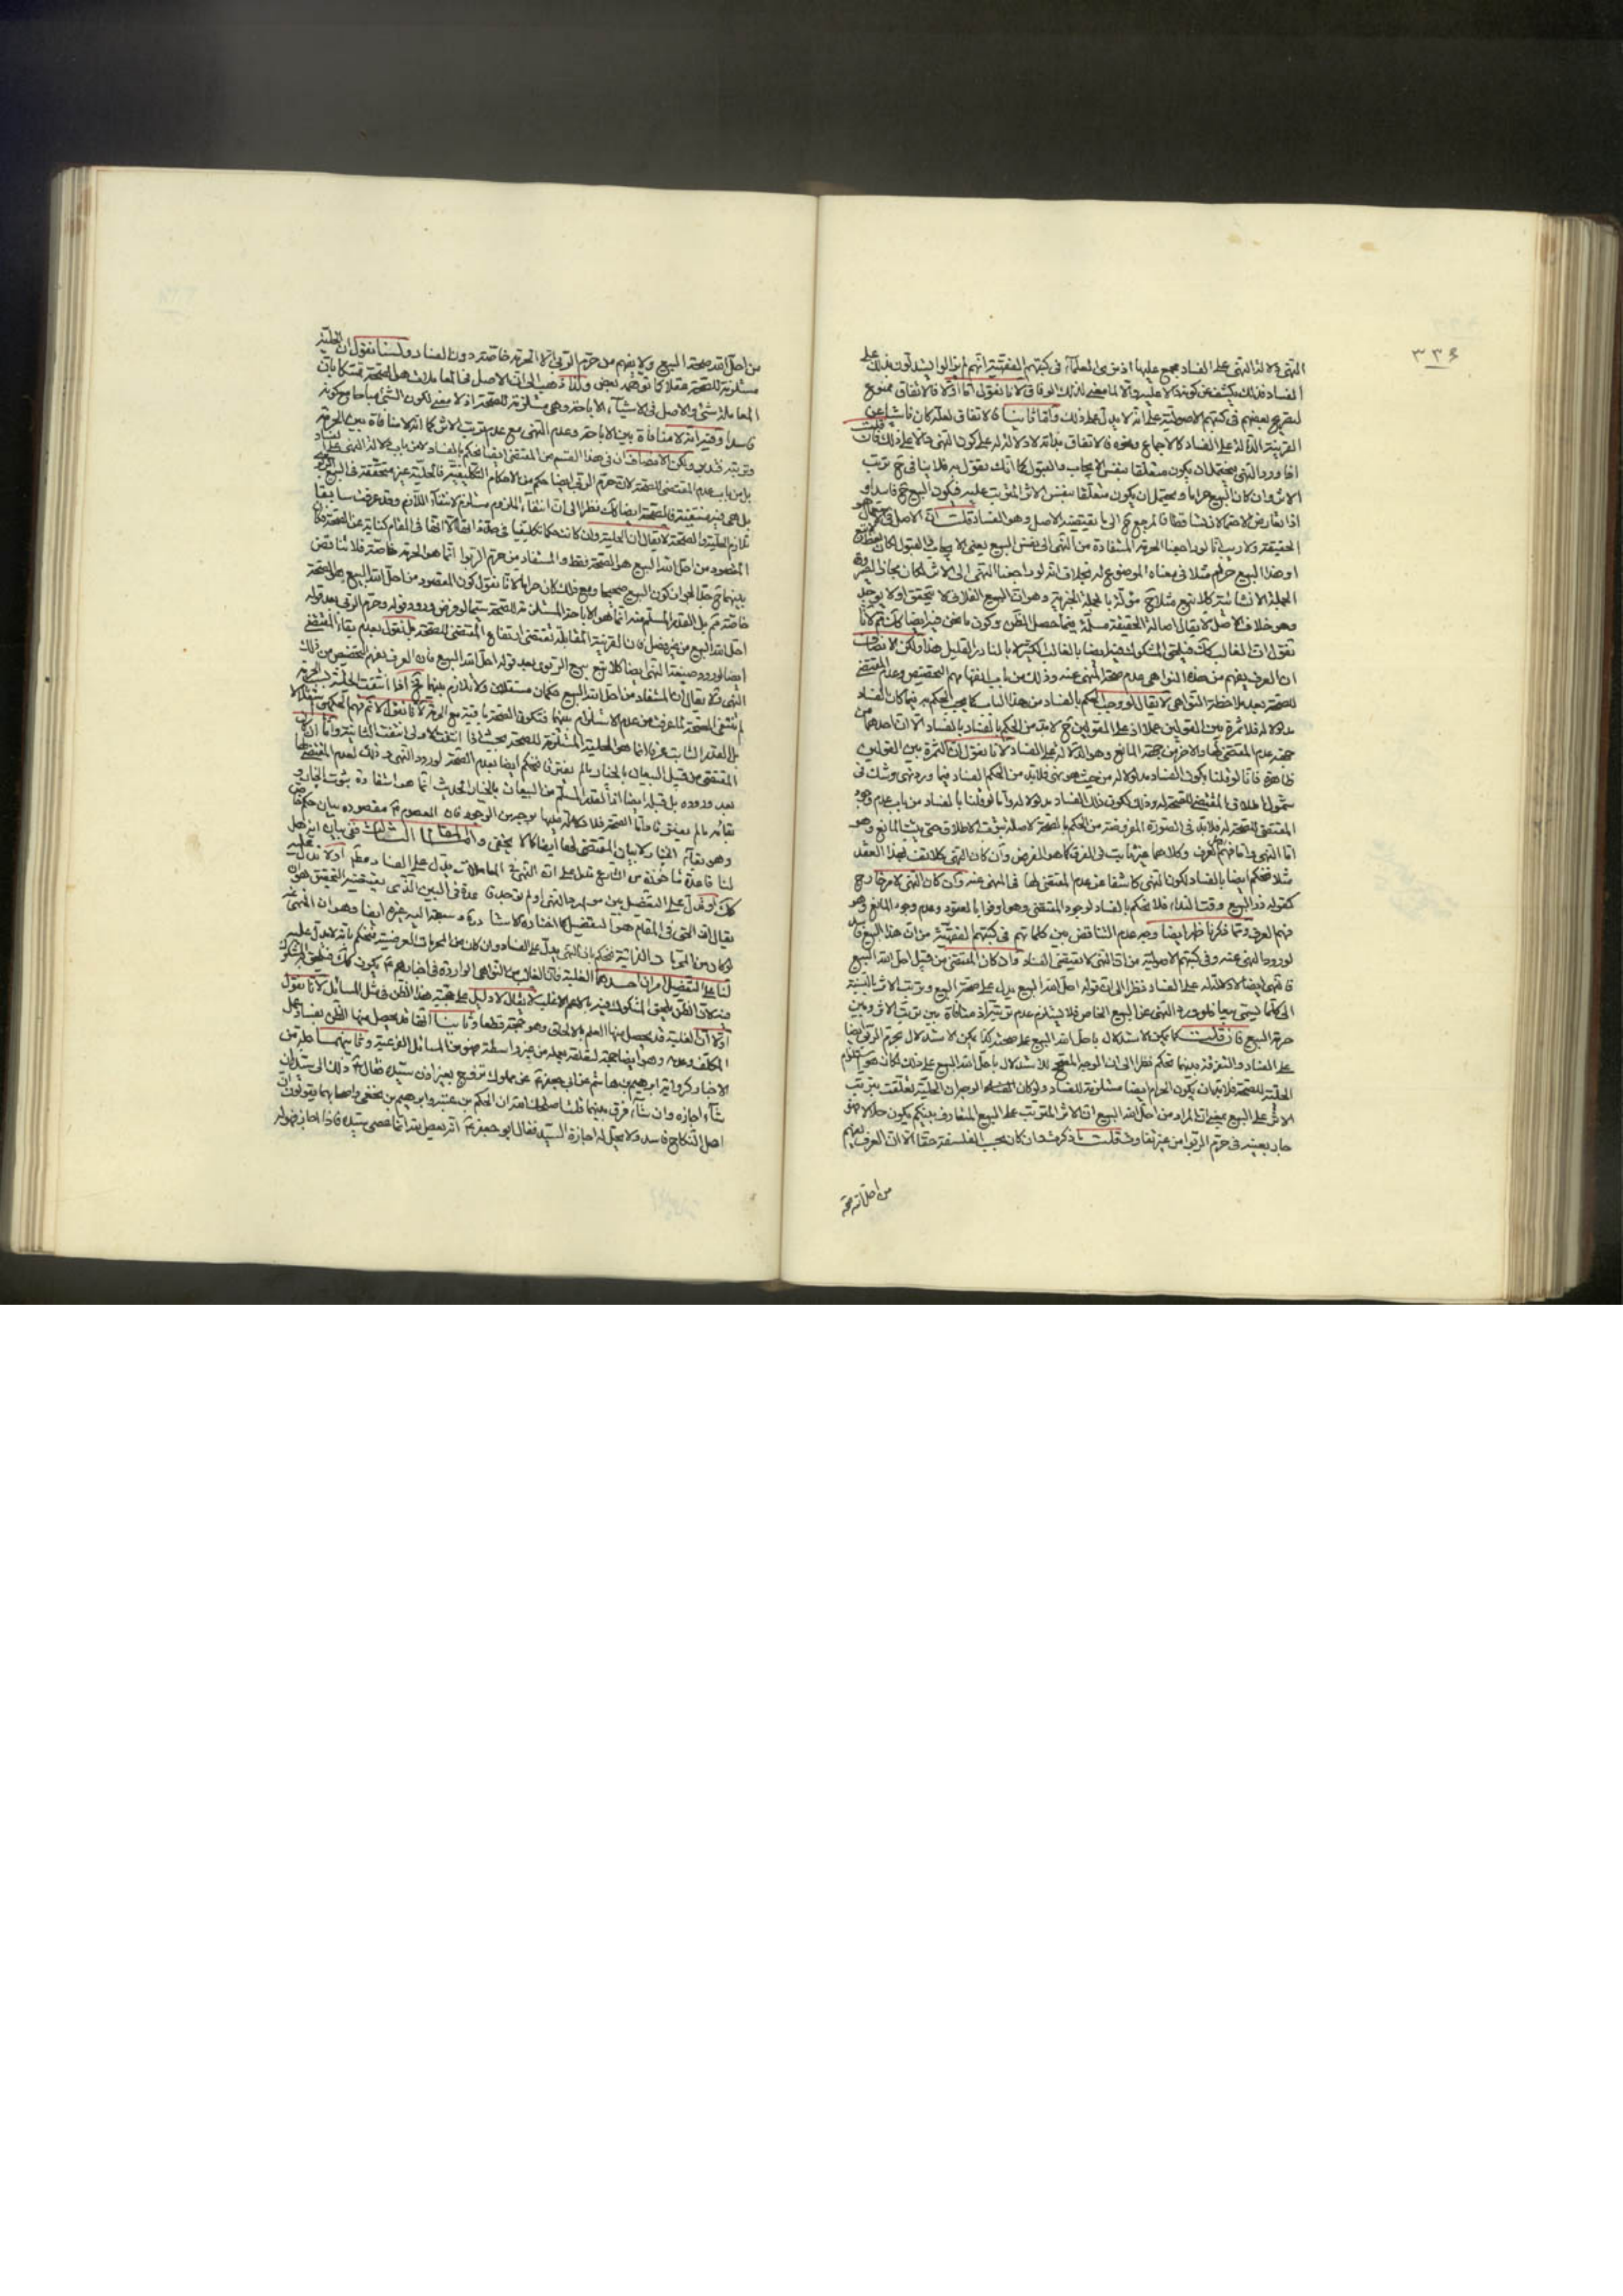 ٣٣٤
النهى دلالة النهى على الفساد مجمع عليها اذ نرى العلماء فى كتبهم الفقهية انهم لم يزالوا يستدلون بذلك على
الفساد فذلك يكشف عن كونه دالا عليه والا لما معنى لذلك الوفاق لانا نقول اما اولا فالاتفاق ممنوع
لتصريح بعضهم فى كتبهم الاصولية على انه لا يدل على ذلك واما ثانيا فالاتفاق لعله كان ناشئا عن
القرينة الدالة على الفساد كالاجماع ونحوه فالاتفاق بذاته لا دلالة له على كون النهى دالا على ذلك فان قلت
اذا ورد النهى يحتمل ان يكون متعلقا بنفس الايجاب والقبول كما انك تقول به فلا ينافى ح ترتب
الاثر وان كان البيع حراما ويحتمل ان يكون متعلقا بنفس الاثر المترتب عليه فيكون البيع ح فاسدا و
اذا تعارض الاحتمالان تساقطا فالمرجع ح الى ما يقتضيه الاصل وهو الفساد قلت ان الاصل فى الاستعمال هو
الحقيقة ولا ريب انا لو راجعنا الحرمة المستفادة من النهى الى نفس البيع يعنى الايجاب والقبول لكان لفظ لا تبع
او هذا البيع حرام مثلا فى معناه الموضوع له بخلاف انه لو راجعنا النهى الى الاثر لكان مجازا لصيرورة
الجملة الانشائية كلا تبع مثلا ح مؤلة بالجملة الخبرية وهو ان البيع الفلانى لا يتحقق او لا يوجد
وهو خلاف الاصل لا يقال اصالة الحقيقة مسلمة فيما حصل الظن وكون ما نحن فيه ايضا كك ثم لانا
نقول ان الغالب كك فيلحق المشكوك فيه ايضا بالغالب لكثيرة لا بالنادر القليل هذا ولكن الانصاف
ان العرف يفهم من هذه النواهى عدم صحة المنهى عنه وذلك من باب فهمهم التخصيص وعدم المقتضى
للصحة بعد ملاحظة النواهى لا يقال لو وجب الحكم بالفساد من هذا الباب كما يجب الحكم به فيما كان الفساد
مدلولا له فلا ثمرة بين القولين عملا اذ على القولين ح لا بد من الحكم بالفساد بالفساد الا ان احدهما من
جهة عدم المقتضى لها والاخر من جهة المانع وهو الدلالة على الفساد لانا نقول ان الثمرة بين القولين
ظاهرة فانا لو قلنا بكون الفساد مدلولا له من حيث هو نهى فلا بد من الحكم بالفساد فيما ورد نهى وشك فى
شمول اطلاق المقتضى للصحة له وذلك لكون ذلك الفساد مدلولا له واما لو قلنا بالفساد من باب عدم وجود
المقتضى للصحة له فلا بد فى الصورة المفروضة من الحكم بالصحة لاصالة بقاء الاطلاق حتى يثبت المانع وهو
اما النهى واما فهم العرف وكلاهما غير ثابت فى الفرق كما هو الفرض وان كان النهى كلا تقف لهذا العقد
مثلا فنحكم ايضا بالفساد لكون النهى كاشفا عن عدم المقتضى لها فى المنهى عنه وان كان النهى لامر خارج
كقوله ذر البيع وقت النداء فلا نحكم بالفساد لوجود المقتضى وهو اوفوا بالعقود وعدم وجود المانع وهو
فهم العرف ومما ذكرنا ظهر ايضا وجه عدم التناقض بين كلماتهم فى كتبهم الفقهية من ان هذا البيع فاسد
لورود النهى عنه وفى كتبهم الاصولية من ان النهى لا يقتضى الفساد وان كان المقتضى من قبيل احل الله البيع
فالنهى ايضا لا دلالة له على الفساد نظرا الى ان قوله احل الله البيع يدل على صحة البيع وترتب الاثر بالنسبة
الى كلما يسمى بيعا فلو ورد النهى عن البيع الخاص فلا يستلزم عدم ترتبه اذ منافاة بين ترتب الاثر وبين
حرمة البيع فان قلت كما يمكن الاستدلال باحل الله البيع على صحته كذا يمكن الاستدلال بحرم الربوا ايضا
على الفساد والتفرقة بينهما تحكم نظرا الى ان الوجه المصحح للاستدلال باحل الله البيع على ذلك لكان هو استلزام
الحلية للصحة فلا بد ان يكون الحرام ايضا مستلزمة للفساد ولو كان الوجه ان الحلية تعلقت بترتب
الاثر على البيع بمعنى ان المراد من احل الله البيع ان الاثر المترتب على البيع المتعارف بينكم يكون حلالا فهو
جار بعينه فى حرم الربوا من غير تفاوت قلت ما ذكرت وان كان بحسب الفلسفة حقا الا ان العرف يفهم
من احل الله صحة
من احل الله صحة البيع ولا يفهم من حرم الربوا الا الحرمة خاصة دون الفساد ولسنا نقول ان الحلية
مستلزمة للصحة عقلا كما توهمه بعض ولذا ذهب الى ان الاصل فى المعاملات هو الصحة تمسكا بان
المعاملة شئ والاصل فى الاشياء الاباحة وهى مستلزمة للصحة اذ لا معنى لكون الشئ مباحا مع كونه
فاسدا وفيه انه لا منافاة بين الاباحة وعدم النهى مع عدم ترتب الاثر كما انه لا منافاة بين الحرمة
وترتبه فتدبر ولكن الانصاف ان فى هذا القسم من المقتضى ايضا نحكم بالفساد لا من باب دلالة النهى على الفساد
بل من باب عدم المقتضى للصحة لان حرم الربوا ايضا حكم من الاحكام التكليفية فالحلية غير متحققة فى البيع الربوى
بل هى فيه منتفية فالصحة ايضا كك نظرا الى ان انتفاء الملزوم مستلزم لانتفاء اللازم وقد عرفت سابقا
تلازم الحلية والصحة لا يقال ان الحلية وان كانت حكما تكليفيا فى حد ذاتها الا انها فى المقام كناية عن الصحة فكان
المقصود من احل الله البيع هو الصحة فقط والمستفاد من حرم الربوا انما هو الحرمة خاصة فلا تناقض
بينهما ح خلا لجواز كون البيع صحيحا ومع ذلك كان حراما لانا نقول كون المقصود من احل الله البيع بيان الصحة
خاصة مم بل القدر المسلم منه انما هو الاباحة المستلزمة للصحة سيما لو فرض ورود قوله وحرم الربوا بعد قوله
احل الله البيع من غير فصل فان القرينة المقابلة تقتضى ارتفاع المقتضى للصحة بل نقول بعدم بقاء المقتضى
ايضا لو ورد صيغة النهى ايضا كلا تبع بيع الربوى بعد قوله احل الله البيع فان العرف يفهم التخصيص من ذلك
النهى ولا يقال ان المستفاد من احل الله البيع حكمان مستقلان ولا تلازم بينهما فح اذا انتفت الحلية بسبب الحرمة
لم تنتفى الصحة لما عرفت من عدم الاستلزام بينهما فتكون الصحة باقية مع الحرمة لانا نقول لا نم فهم الحكمين مستقلا
بل القدر الثابت عرفا انما هو الحلية المستلزمة للصحة بحيث اذا انتفت الاولى انتفت الثانية واما ان كان
المقتضى من قبيل البيعان بالخيار ما لم يفترقا فنحكم ايضا بعدم الصحة لورود النهى وذلك لعدم المقتضى لها
بعد وروده بل قبله ايضا اذ القدر المسلم من البيعان بالخيار الحديث انما هو استفادة ثبوت الخيار و
بقائه ما لم يفترقا واما الصحة فلا دلالة له عليها بوجه من الوجوه فان المعصوم ع مقصوده بيان حكم خاص
وهو بقاء الخيار لا بيان المقتضى لها ايضا كما لا يخفى واما المقام الثالث ففى بيان انه هل
لنا قاعدة ماخوذة من الشارع تدل على ان النهى فى المعاملات يدل على الفساد مطلقا او لا تدل عليه
كك او تدل على التفصيل بين موارد النهى او لم توجد قاعدة فى البين الذى يقتضيه التحقيق هو ان
يقال ان الحق فى المقام هو التفصيل كما اختاره الاستاد دام وسبقه اليه غيره ايضا وهو ان المنهى عنه
لو كان من المحرمات الذاتية فنحكم بان النهى يدل على الفساد وان كان من المحرمات العرضية فنحكم بانه لا يدل عليه
لنا على التفصيل امران احدهما الغلبة فان الغالب من النواهى الواردة فى اخبارهم ع يكون كك فيلحق المشكوك
فيه لان الظن يلحق المشكوك فيه بالاعم الاغلب لا يقال لا دليل على حجية هذا الظن فى مثل المسائل لانا نقول
اولا ان الغلبة قد يحصل منها العلم بالالحاق وهو حجة قطعا وثانيا انها قد يحصل منها الظن بفساد عمل
المكلف وعدمه وهو ايضا حجة لتعلقه بعمله من غير واسطة فهو من المسائل الفرعية وثانيهما ما ظهر من
الاخبار كرواية ابرهيم بن هاشم عن ابى جعفر ع عن مملوك تزوج بغير اذن سيده فقال ع ذلك الى سيده ان
شاء اجازه وان شاء فرق بينهما قلت اصلحك الله ان الحكم بن عتيبة وابرهيم النخعى واصحابهما يقولون ان
اصل النكاح فاسد ولا يحل له اجازة السيد فقال ابو جعفر ع انه لم يعص الله انما عصى سيده فاذا اجاز فهو له